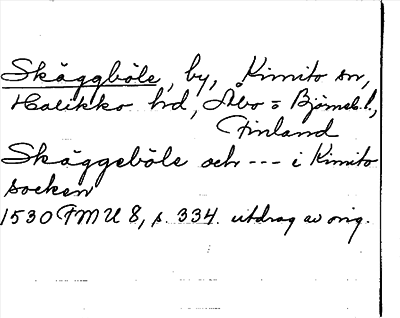 Skäggböle, by, Kimito sn,
Halikko hd, Åbo = Björneb. l.,
Finland
Skäggeböle och --- i Kimito
socken
1530 FMU 8, s. 334. utdrag av orig.